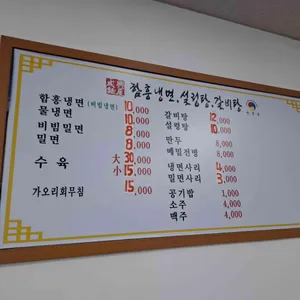 함흥냉면,설렁탕,갈비탕
함흥냉면(비빔냉면) 10,000
물냉면 10,000
비빔밀면 8,000
밀면 8,000
수육 大 30,000
小 15,000
가오리회무침 15,000
갈비탕 12,000
설렁탕 10,000
만두 8,000
메밀전병 8,000
냉면사리 4,000
밀면사리 3,000
공기밥 1,000
소주 4,000
맥주 4,000